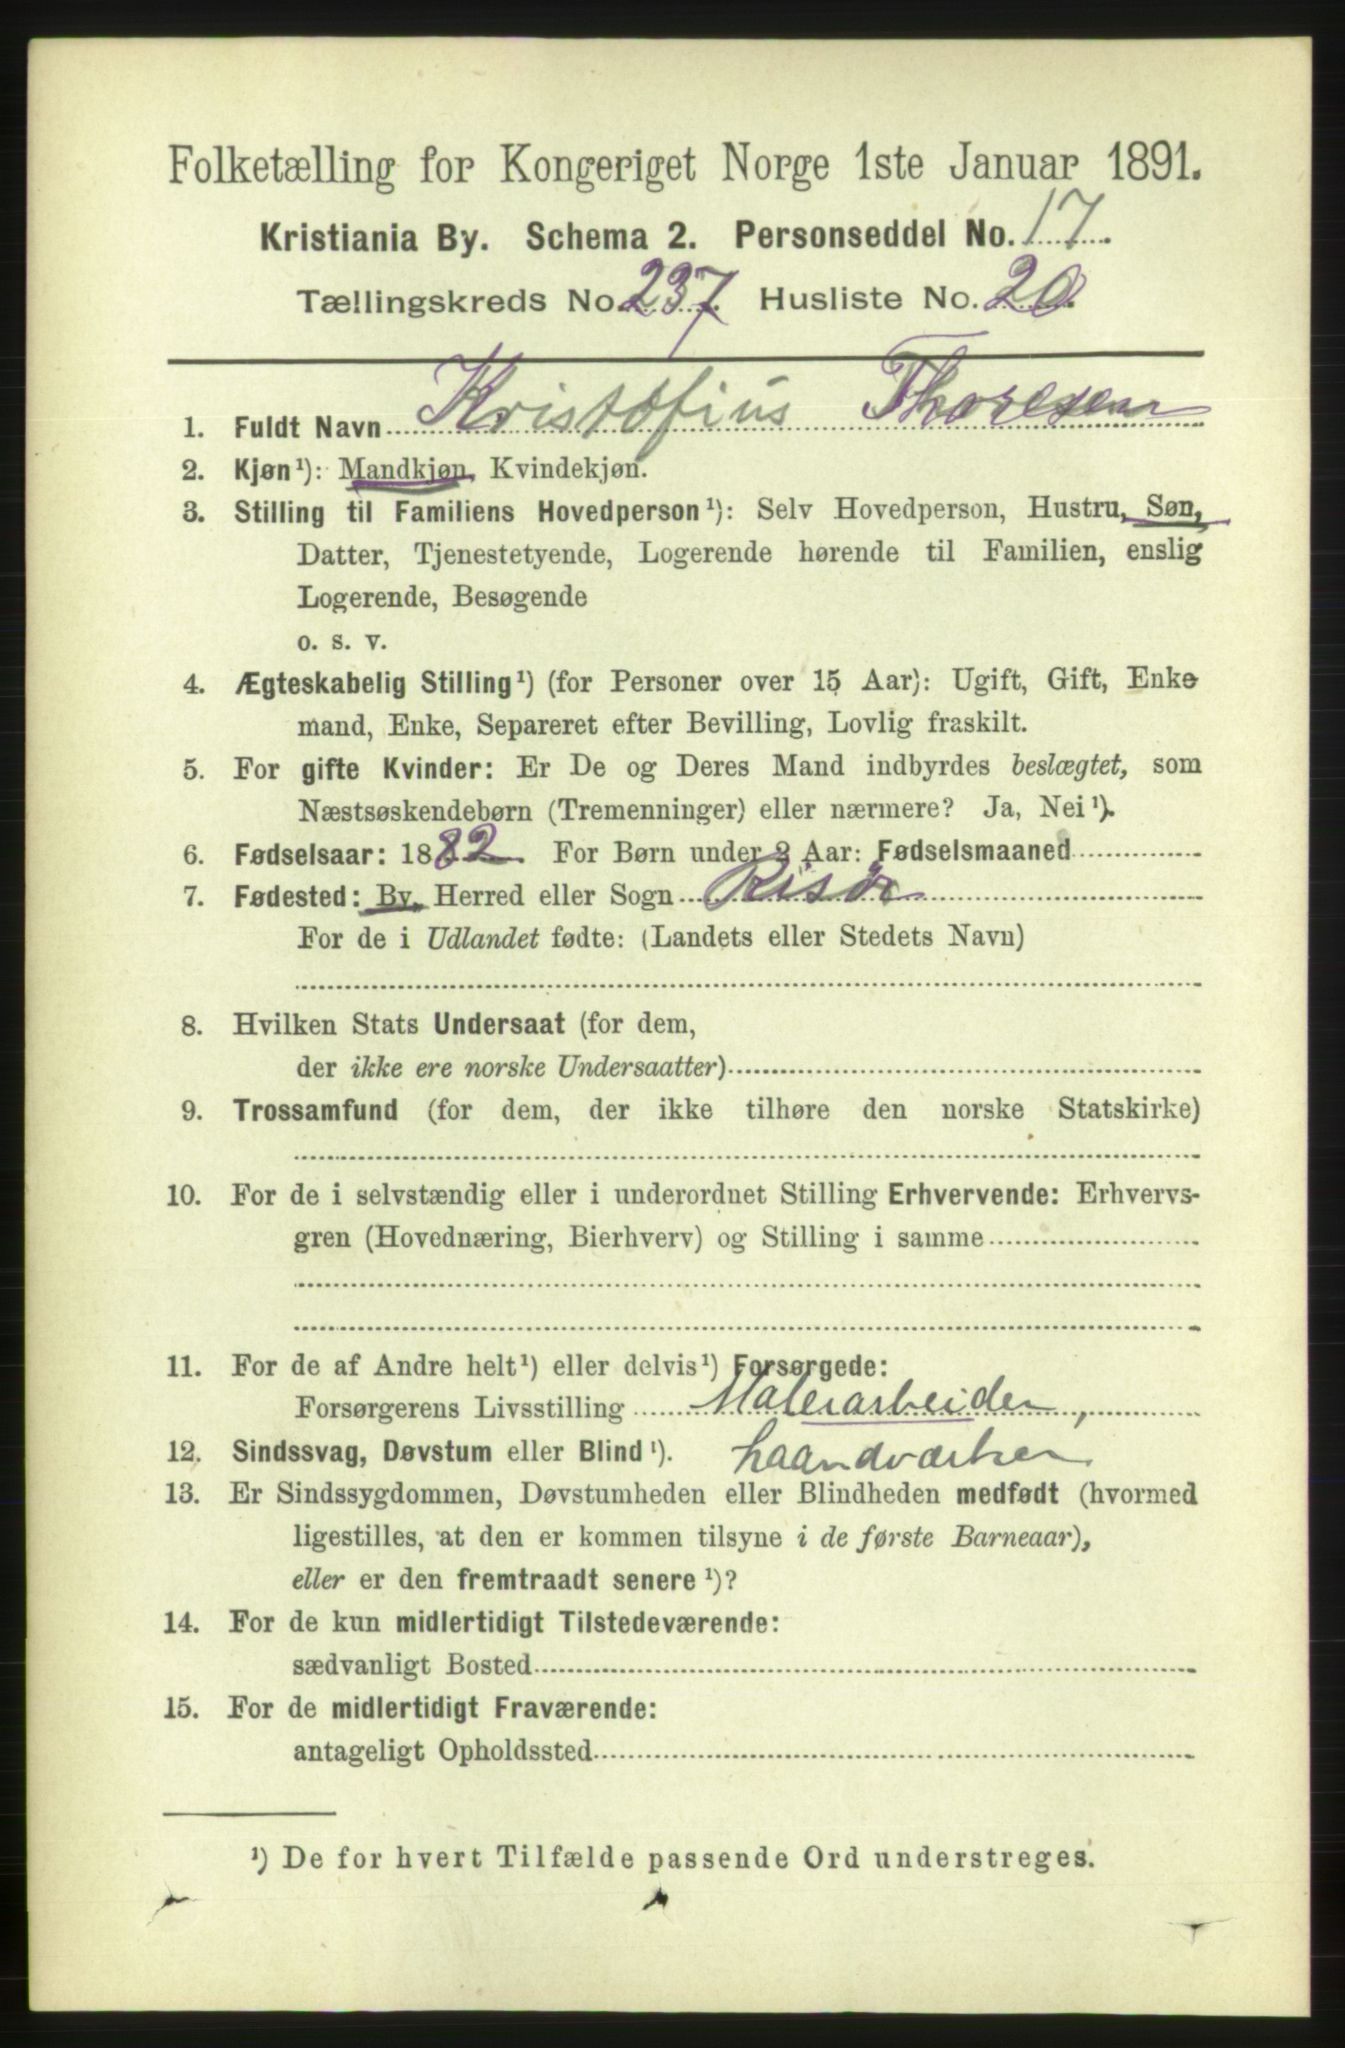 Folketælling for Kongeriget Norge 1ste Januar 1891.
Kristiania By. Schema 2. Personseddel No. 17.
Tællingskreds No. 237. Husliste No. 20.
1. Fuldt Navn Kristofius Thoresen
2. Kjøn¹): Mandkjøn, Kvindekjøn.
3. Stilling til Familiens Hovedperson¹): Selv Hovedperson, Hustru, Søn,
Datter, Tjenestetyende, Logerende hørende til Familien, enslig
Logerende, Besøgende
o. s. v.
4. Ægteskabelig Stilling¹) (for Personer over 15 Aar): Ugift, Gift, Enke-
mand, Enke, Separeret efter Bevilling, Lovlig fraskilt.
5. For gifte Kvinder: Er De og Deres Mand indbyrdes beslægtet, som
Næstsøskendebørn (Tremenninger) eller nærmere? Ja, Nei¹).
6. Fødselsaar: 1882. For Børn under 2 Aar: Fødselsmaaned
7. Fødested: By, Herred eller Sogn Risør
For de i Udlandet fødte: (Landets eller Stedets Navn)
8. Hvilken Stats Undersaat (for dem,
der ikke ere norske Undersaatter)
9. Trossamfund (for dem, der ikke tilhøre den norske Statskirke)
10. For de i selvstændig eller i underordnet Stilling Erhvervende: Erhvervs-
gren (Hovednæring, Bierhverv) og Stilling i samme
11. For de af Andre helt¹) eller delvis¹) Forsørgede:
Forsørgerens Livsstilling Malerarbeider,
12. Sindssvag, Døvstum eller Blind¹). haandværker
13. Er Sindssygdommen, Døvstumheden eller Blindheden medfødt (hvormed
ligestilles, at den er kommen tilsyne i de første Barneaar),
eller er den fremtraadt senere¹)?
14. For de kun midlertidigt Tilstedeværende:
sædvanligt Bosted
15. For de midlertidigt Fraværende:
antageligt Opholdssted
¹) De for hvert Tilfælde passende Ord understreges.